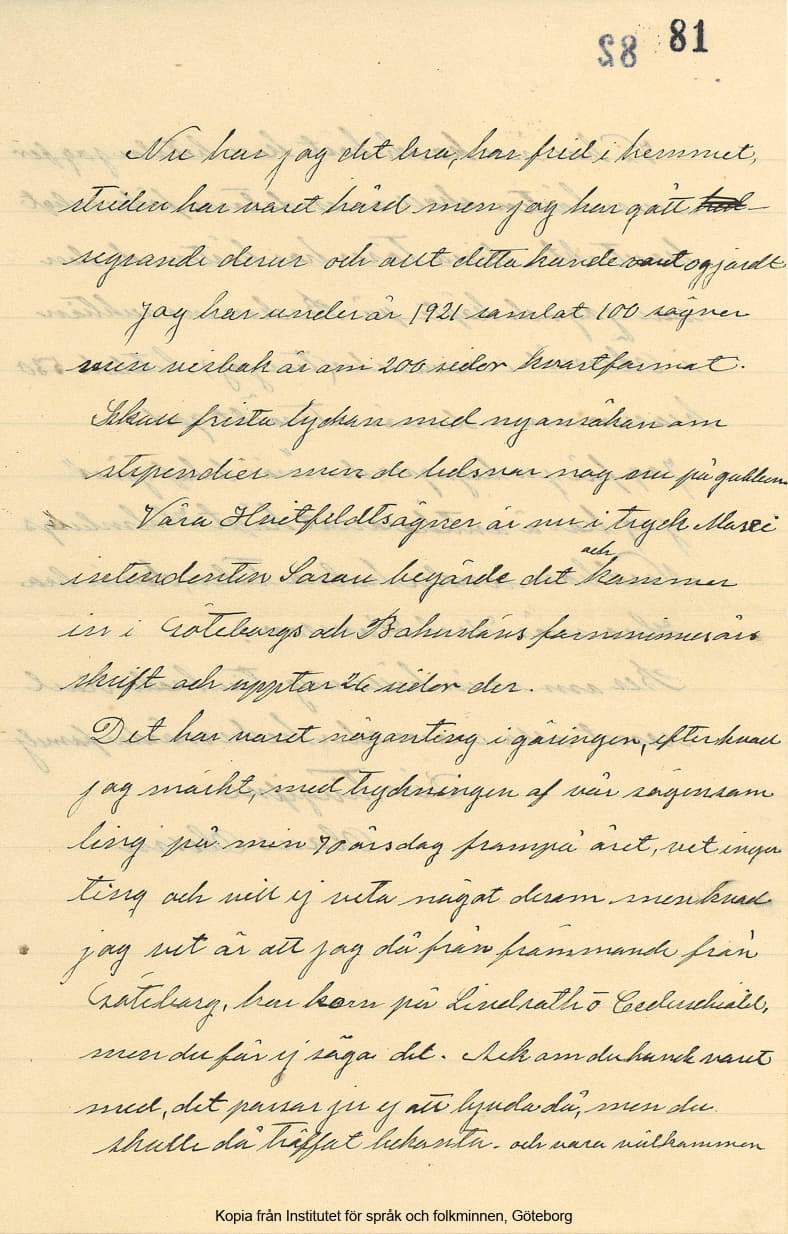 82 81
Nu har jag det bra, har frid i hemmet,
striden har varet hård men jag har gått
segrande derur och allt detta hande ogjordt
Jag har under år 1921 samlat 100 sägner
min visbok är om 200 sidor kvartformat.
Skall fresta lyckan med ny ansökan om
stipendier men de belsvar nog nu på gubben
Våra Hvitfeldtsägner är nu i tryck Musei
intendenten Sarau begärde det och kommer
in i Göteborgs och Bohusläns fornminnesårs
skrift och upptar 26 sidor der.
Det har varet någonting i göringen, efter hvad
jag märkt, med tryckningen af vår sägensam
ling på min 70 årsdag frampå året, vet ingen
ting och vill ej veta något derom men hvad
jag vet är att jag då från främmande från
Göteborg, har korn på Lindroth o Cederschiöld,
men du får ej säga det. Ack om du hade varet
med, det passar ju ej att bjuda då, men du
skulle då träffat bekanta. och vara välkommen
Kopia från Institutet för språk och folkminnen, Göteborg